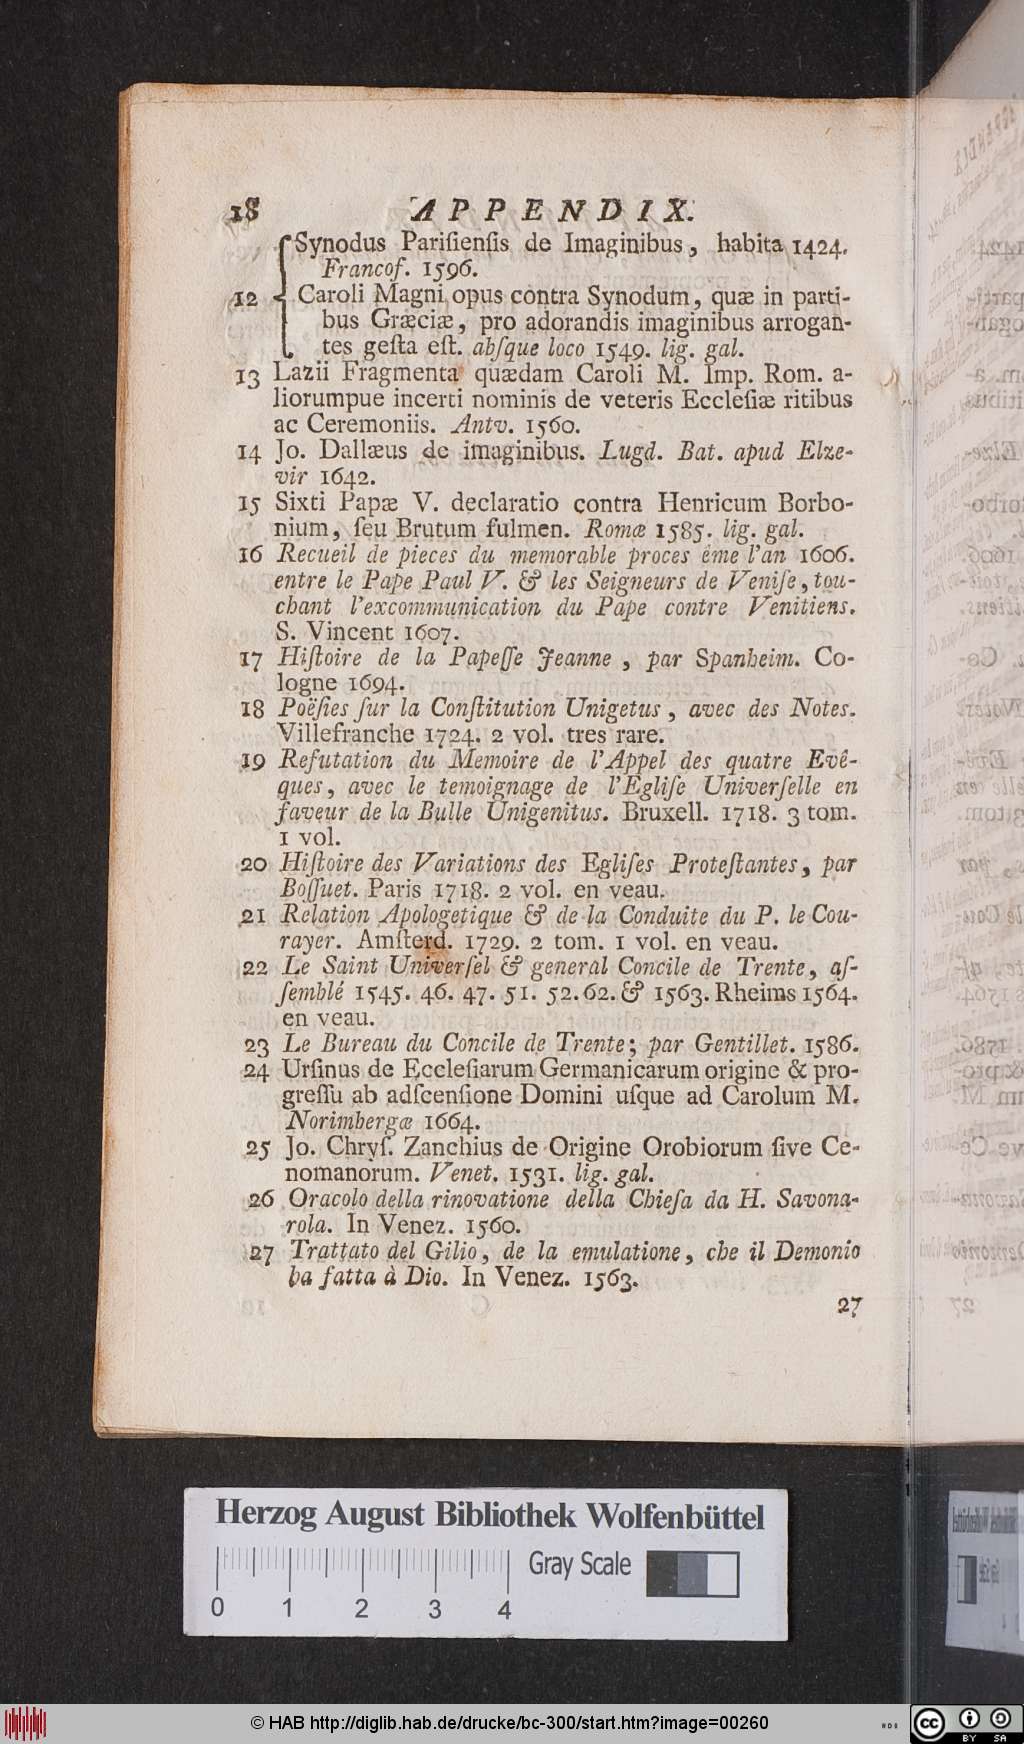 18 APPENDIX.
Synodus Pariſienſis de Imaginibus, habita 1424.
Francof. 1596.
12 Caroli Magni opus contra Synodum, quæ in parti-
bus Græciæ, pro adorandis imaginibus arrogan-
tes geſta eſt. abſque loco 1549. lig. gal.
13 Lazii Fragmenta quædam Caroli M. Imp. Rom. a-
liorumpue incerti nominis de veteris Eccleſiæ ritibus
ac Ceremoniis. Antv. 1560.
14 Jo. Dallæus de imaginibus. Lugd. Bat. apud Elze-
vir 1642.
15 Sixti Papæ V. declaratio contra Henricum Borbo-
nium, ſeu Brutum fulmen. Romæ 1585. lig. gal.
16 Recueil de pieces du memorable proces éme l'an 1606.
entre le Pape Paul V. & les Seigneurs de Veniſe, tou-
chant l'excommunication du Pape contre Venitiens.
S. Vincent 1607.
17 Hiſtoire de la Papeſſe Jeanne, par Spanheim. Co-
logne 1694.
18 Poëſies ſur la Conſtitution Unigetus, avec des Notes.
Villefranche 1724. 2 vol. tres rare.
19 Refutation du Memoire de l'Appel des quatre Evê-
ques, avec le temoignage de l'Egliſe Univerſelle en
faveur de la Bulle Unigenitus. Bruxell. 1718. 3 tom.
1 vol.
20 Hiſtoire des Variations des Egliſes Proteſtantes, par
Boſſuet. Paris 1718. 2 vol. en veau.
21 Relation Apologetique & de la Conduite du P. le Cou-
rayer. Amſterd. 1729. 2 tom. 1 vol. en veau.
22 Le Saint Univerſel & general Concile de Trente, aſ-
ſemblé 1545. 46. 47. 51. 52. 62. & 1563. Rheims 1564.
en veau.
23 Le Bureau du Concile de Trente; par Gentillet. 1586.
24 Urſinus de Eccleſiarum Germanicarum origine & pro-
greſſu ab adſcenſione Domini uſque ad Carolum M.
Norimbergæ 1664.
25 Jo. Chryſ. Zanchius de Origine Orobiorum ſive Ce-
nomanorum. Venet. 1531. lig. gal.
26 Oracolo della rinovatione della Chieſa da H. Savona-
rola. In Venez. 1560.
27 Trattato del Gilio, de la emulatione, che il Demonio
ha fatta à Dio. In Venez. 1563.
27
Herzog August Bibliothek Wolfenbüttel
Gray Scale
0 1 2 3 4
© HAB http://diglib.hab.de/drucke/bc-300/start.htm?image=00260
cc BY SA